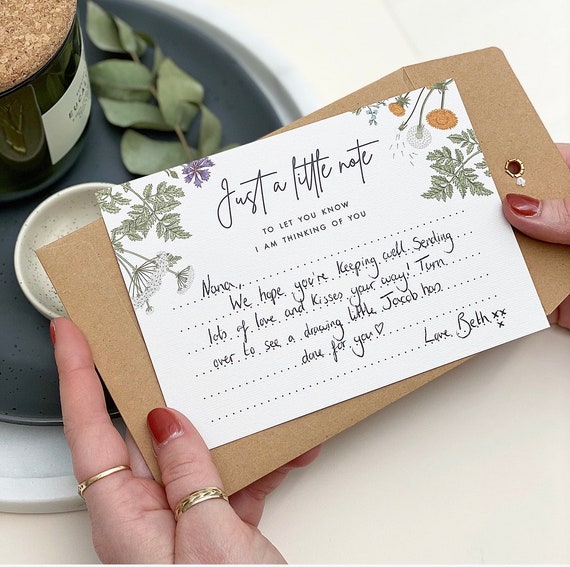 EUCAL
Just a little note
TO LET YOU KNOW
I AM THINKING OF YOU
Nana,
We hope you're keeping well. Sending
lots of love and kisses your way! Turn
over to see a drawing little Jacob has
done for you ♡
Love Beth xx
x